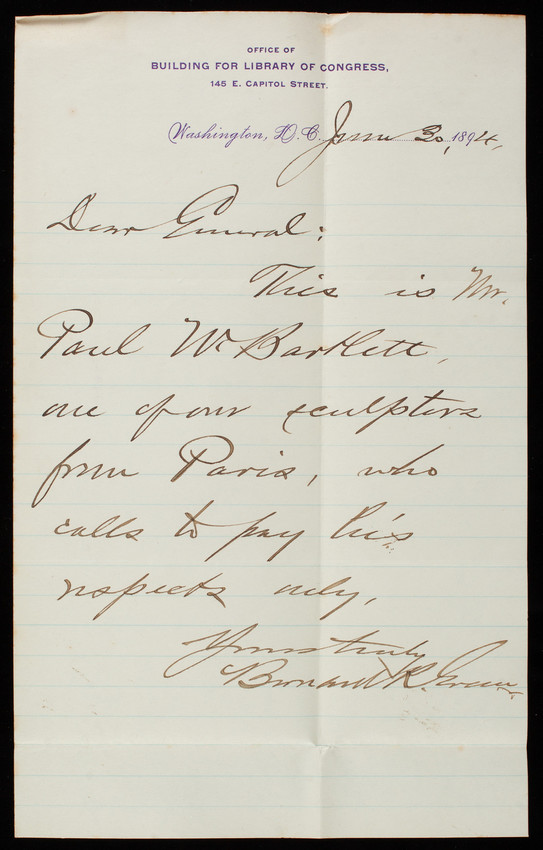 OFFICE OF
BUILDING FOR LIBRARY OF CONGRESS,
145 E. CAPITOL STREET.
Washington, D. C. June 30, 1894,
Dear General:
This is Mr.
Paul W. Bartlett,
one of our sculptors
from Paris, who
calls to pay his
respects only,
Yours truly
Bernard R. Green